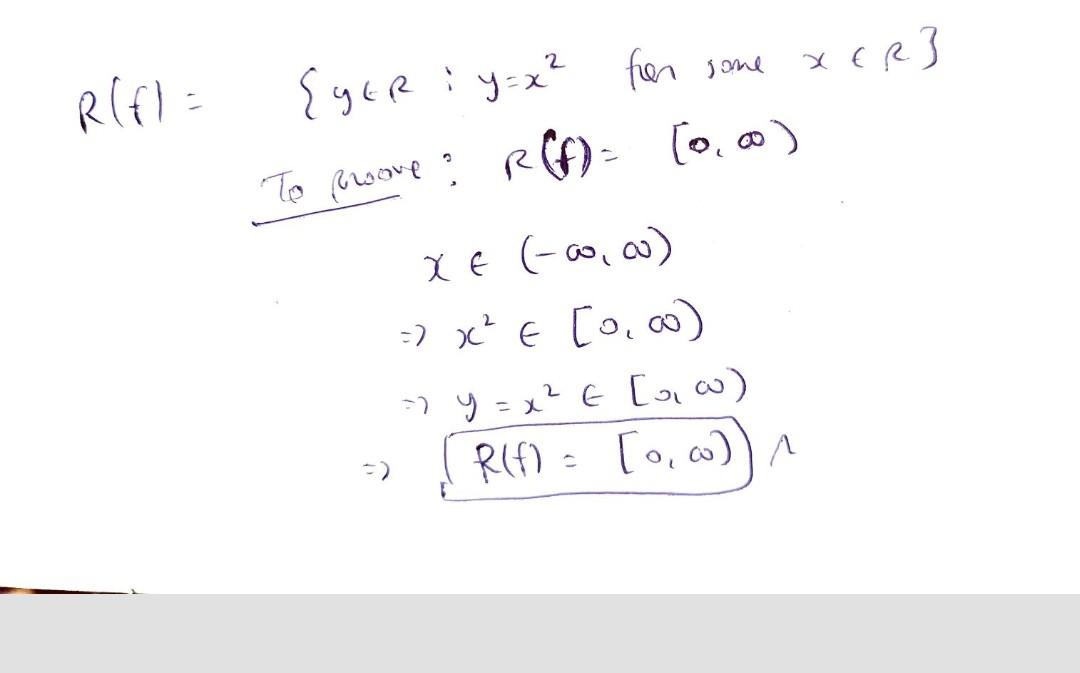 R(f) = {y ∈ R : y = x² for some x ∈ R}
To prove : R(f) = [0, ∞)
x ∈ (-∞, ∞)
=> x² ∈ [0, ∞)
=> y = x² ∈ [0, ∞)
=> R(f) = [0, ∞)